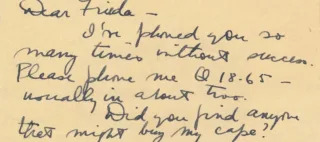 Dear Frieda –
I've phoned you so
many times without success.
Please phone me @ 18.65 –
usually in about two.
Did you find anyone
that might buy my cape?